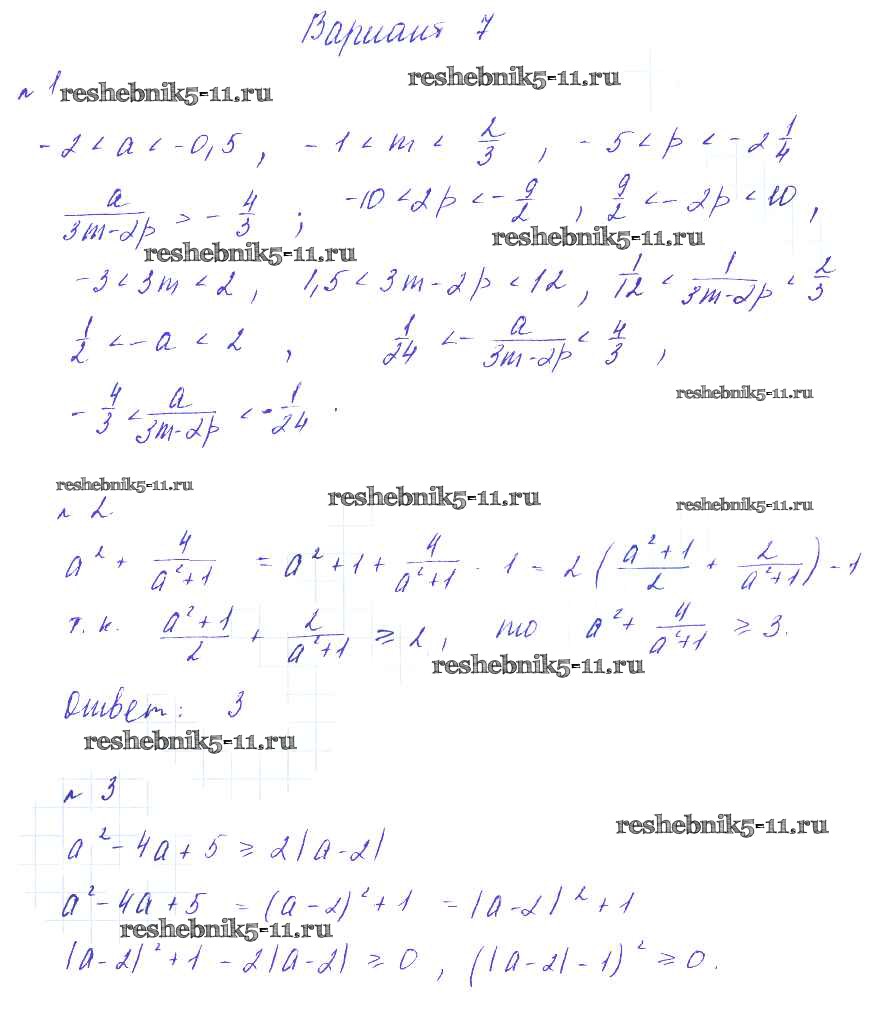 Вариант 7
reshebnik5-11.ru
№ 1 reshebnik5-11.ru
-2 < a < -0,5 , -1 < m < 2/3 , -5 < p < -2 1/4
a/(3m-2p) > - 4/3 ; -10 < 2p < - 9/2 , 9/2 < -2p < 10 ,
reshebnik5-11.ru reshebnik5-11.ru
-3 < 3m < 2 , 1,5 < 3m-2p < 12 , 1/12 < 1/(3m-2p) < 2/3
1/2 < -a < 2 , 1/24 < - a/(3m-2p) < 4/3 ,
reshebnik5-11.ru
- 4/3 < a/(3m-2p) < - 1/24 .
reshebnik5-11.ru reshebnik5-11.ru reshebnik5-11.ru
№ 2
a² + 4/(a²+1) = a² + 1 + 4/(a²+1) - 1 = 2 ( (a²+1)/2 + 2/(a²+1) ) - 1
т. к. (a²+1)/2 + 2/(a²+1) ≥ 2 , то a² + 4/(a²+1) ≥ 3.
reshebnik5-11.ru
Ответ: 3
reshebnik5-11.ru
№ 3
reshebnik5-11.ru
a² - 4a + 5 ≥ 2|a-2|
a² - 4a + 5 = (a-2)² + 1 = |a-2|² + 1
reshebnik5-11.ru
|a-2|² + 1 - 2|a-2| ≥ 0 , (|a-2| - 1)² ≥ 0.